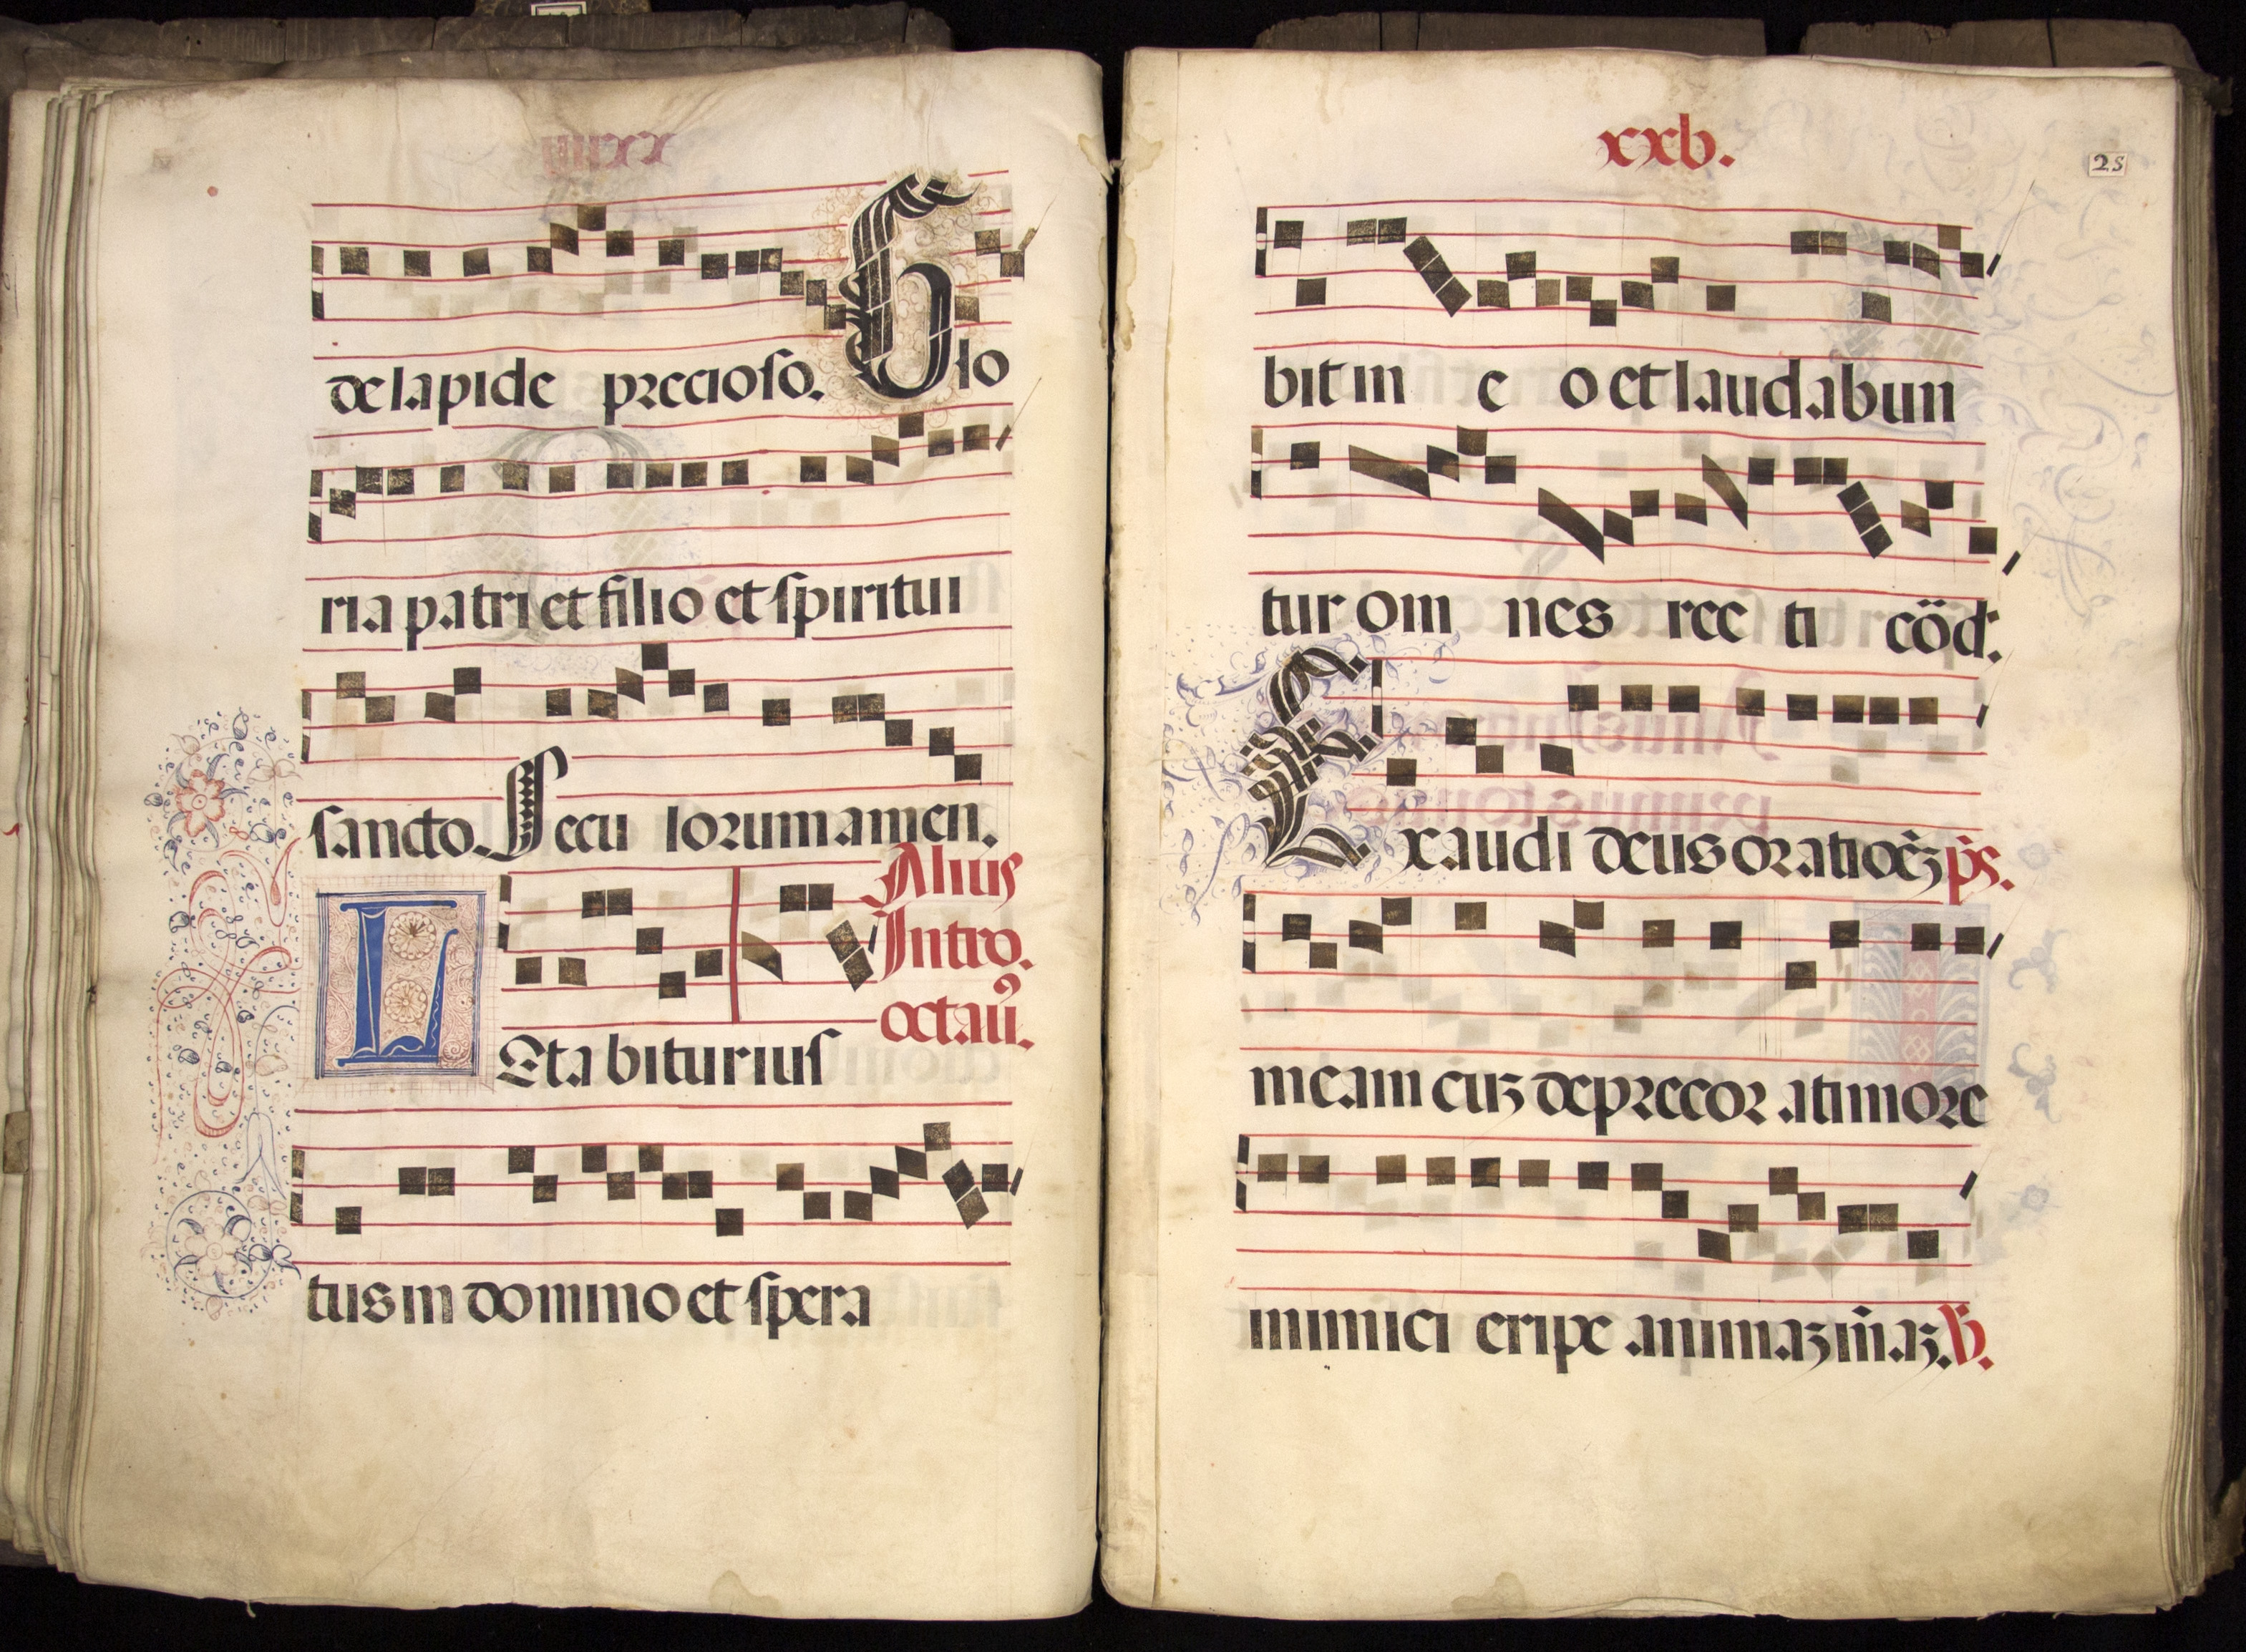 de lapide precioso. Glo
ria patri et filio et spiritui
sancto. Secu lorum amen.
Alius
Intro.
octaũ.
LEtabitur ius
tus in domino et spera
xxb.
25
bit in e o et laudabun
tur om nes rec ti cöd.
Exaudi deus oratioēʒ p̄s.
meam cuʒ deprecor a timore
inimici eripe animaʒ m̄aʒ. V.